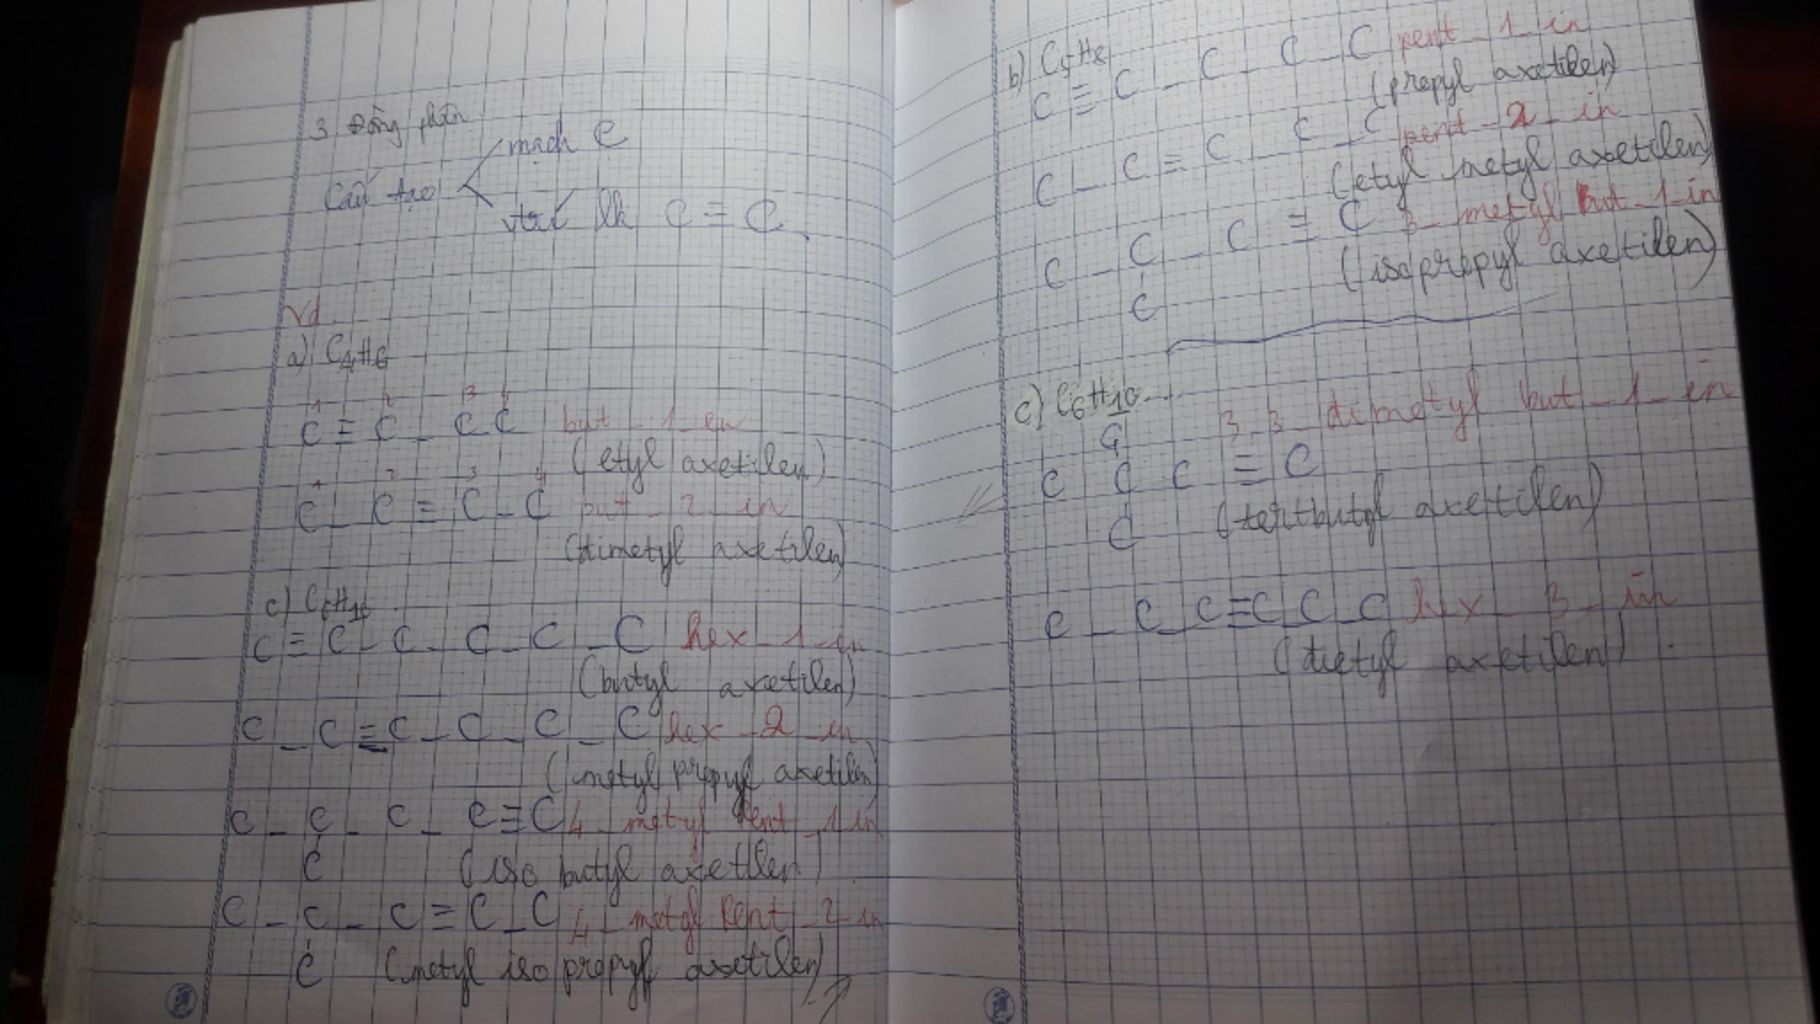 3 Đồng phân
Cấu tạo
mạch C
vtrí lk C ≡ C
Vd
a) C4H6
1 2 3 4
C ≡ C - C C but - 1 - in
(etyl axetilen)
1 2 3 4
C - C ≡ C - C but - 2 - in
(dimetyl axetilen)
c) C6H10
C ≡ C - C - C - C - C hex - 1 - in
(butyl axetilen)
C - C ≡ C - C - C - C hex - 2 - in
(metyl propyl axetilen)
C - C - C - C ≡ C 4 - metyl pent - 1 in
C (iso butyl axetilen)
C - C - C ≡ C - C 4 - metyl pent - 2 - in
C (metyl iso propyl axetilen)
b) C5H8
C ≡ C - C - C - C pent - 1 - in
(propyl axetilen)
C - C ≡ C - C - C pent - 2 - in
(etyl metyl axetilen)
C - C - C ≡ C 3 - metyl but - 1 - in
C (isopropyl axetilen)
c) C6H10
C 3 - 3 - dimetyl but - 1 - in
C C C ≡ C
C (tertbutyl axetilen)
C - C C ≡ C C C hex - 3 - in
(dietyl axetilen)